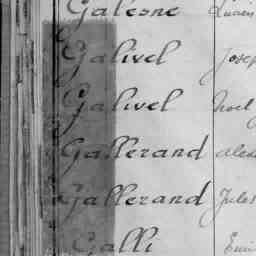 Galesne
Galivel Josep
Galivel Noel
Gallerand Alex
Gallerand Jules
Galli